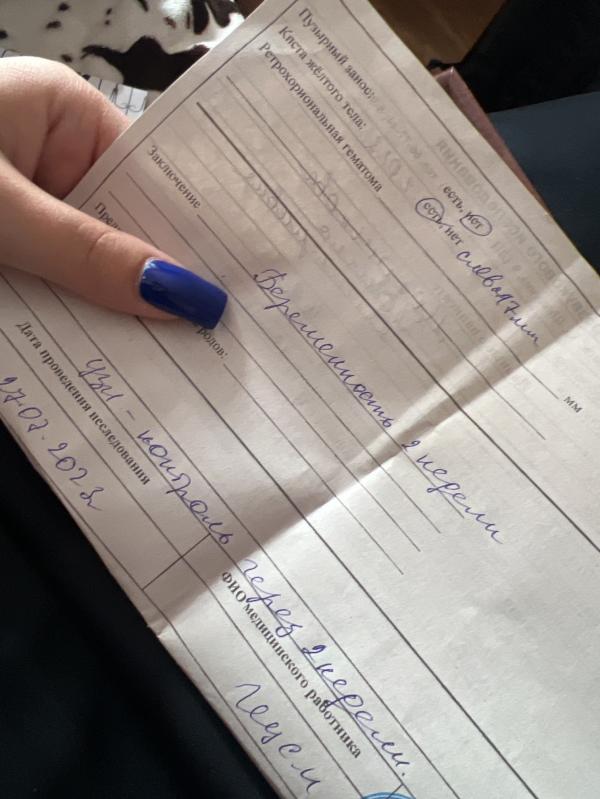 Пузырный занос: есть, нет
Киста жёлтого тела: есть, нет слева 17 мм
Ретрохориальная гематома мм
Заключение Беременность 2 недели
родов:
УЗИ - контроль через 2 недели.
Дата проведения исследования ФИО медицинского работника
27.07.2023